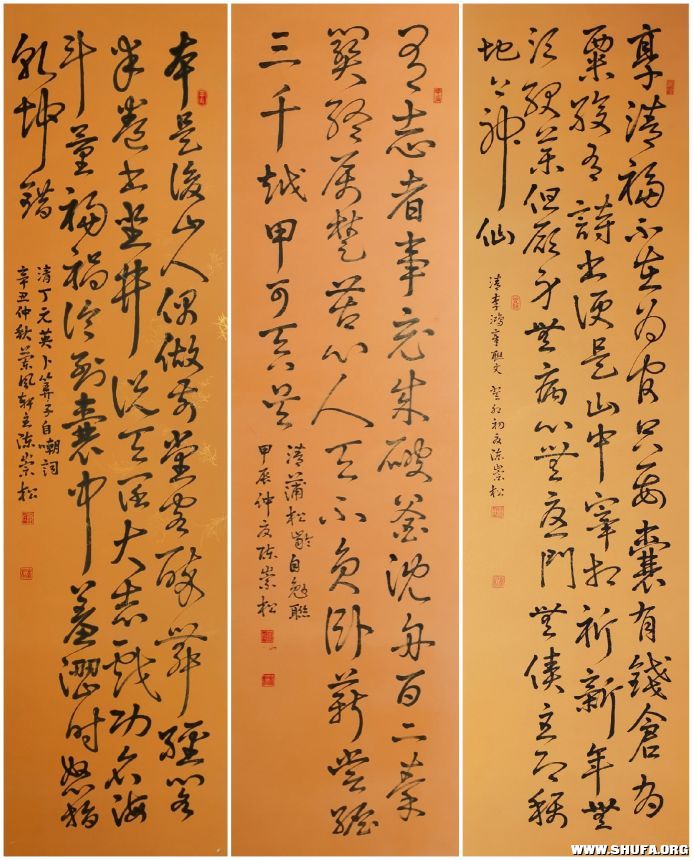 享清福不在為官只要囊有錢倉有
粟腹有詩書便是山中宰相祈新年無
須服藥但願身無病心無憂門無債主可稱
地上神仙
清李鴻章聯文 癸卯初夏陳崇松
有志者事竟成破釜沈舟百二秦
關終屬楚苦心人天不負卧薪嘗膽
三千越甲可吞吴
清蒲松齡自勉聯
甲辰仲夏陳崇松
本是後山人偶做前堂客醉舞經閣
半卷書坐井說天闊大志戲功名海
斗量福禍論到囊中羞澀時怒指
乾坤錯
清丁元英卜算子自嘲詞
辛丑仲秋蘭風軒主陳崇松
WWW.SHUFA.ORG